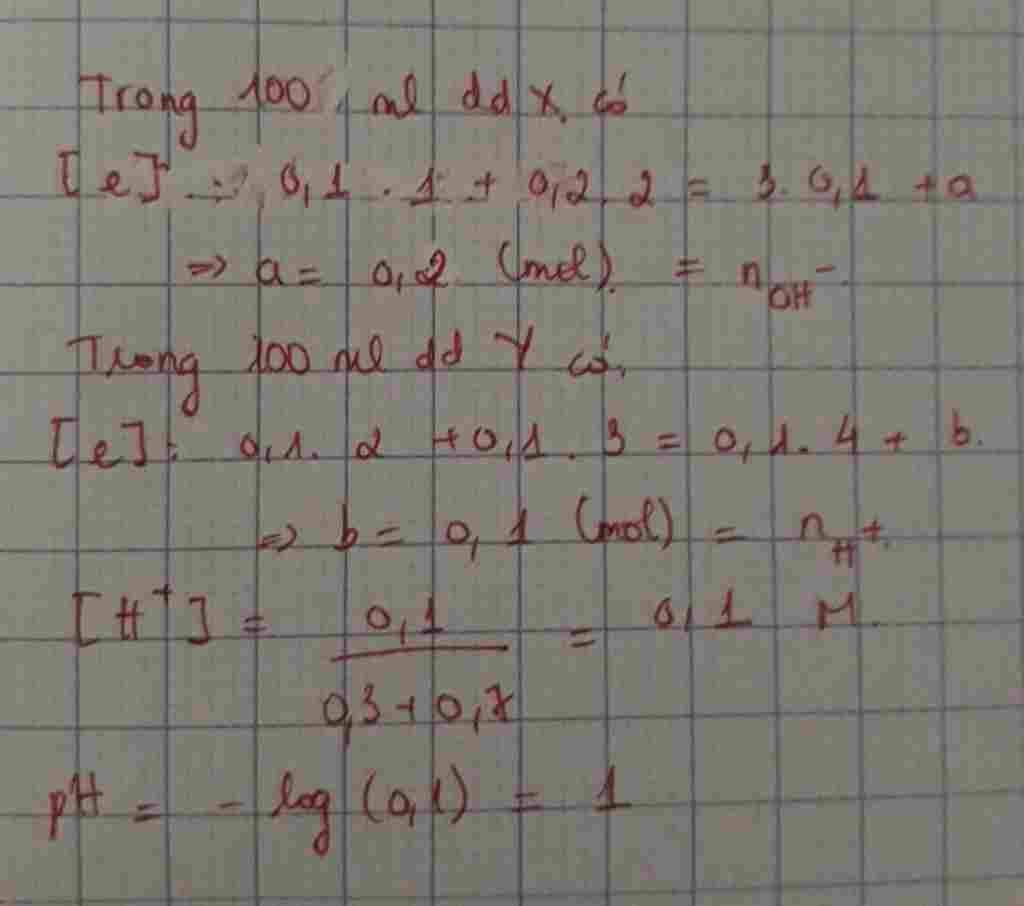 Trong 100 ml dd X có
[e]: 0,1 . 1 + 0,2 . 2 = 3 . 0,1 + a
=> a = 0,2 (mol) = nOH-
Trong 100 ml dd Y có.
[e]: 0,1. 2 + 0,1 . 3 = 0,1. 4 + b.
=> b = 0,1 (mol) = nH+.
[H+] = 0,1 / 0,3 + 0,7 = 0,1 M.
pH = - log (0,1) = 1